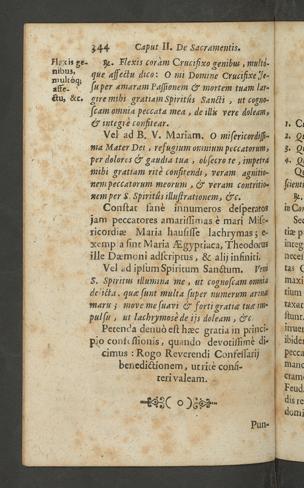 344 Caput II. De Sacramentis.
Flexis ge-
nibus,
multóq;
affe-
ctu, &c.
℞. Flexis coram Crucifixo genibus, multó-
que affectu dico: O mi Domine Crucifixe Je-
su per amaram Passionem & mortem tuam lar-
gire mihi gratiam Spiritûs Sancti, ut cognos-
cam omnia peccata mea, de illis vere doleam,
& integrè confitear.
Vel ad B. V. Mariam. O misericordissi-
ma Mater Dei, refugium omnium peccatorum,
per dolores & gaudia tua, obsecro te, impetra
mihi gratiam ritè confitendi, veram agnitio-
nem peccatorum meorum, & veram contritio-
nem per S. Spiritûs illustrationem, &c.
Constat sanè innumeros desperatos
jam peccatores amarissimas è mari Mise-
ricordiæ Maria hausisse lachrymas; e-
xemplo sint Maria Ægyptiaca, Theodorus
ille Dæmoni adscriptus, & alij infiniti.
Vel ad ipsum Spiritum Sanctum. Veni
S. Spiritus illumina me, ut cognoscam omnia
delicta, quæ sunt multa super numerum arenæ
maris; move me suavi & forti gratiæ tuæ im-
pulsu, ut lachrymosè de ijs doleam, &c.
Petenda denuò est hæc gratia in princi-
pio confessionis, quando devotissimè di-
cimus: Rogo Reverendi Confessarij
benedictionem, ut ritè confi-
teri valeam.
( o )
Pun-